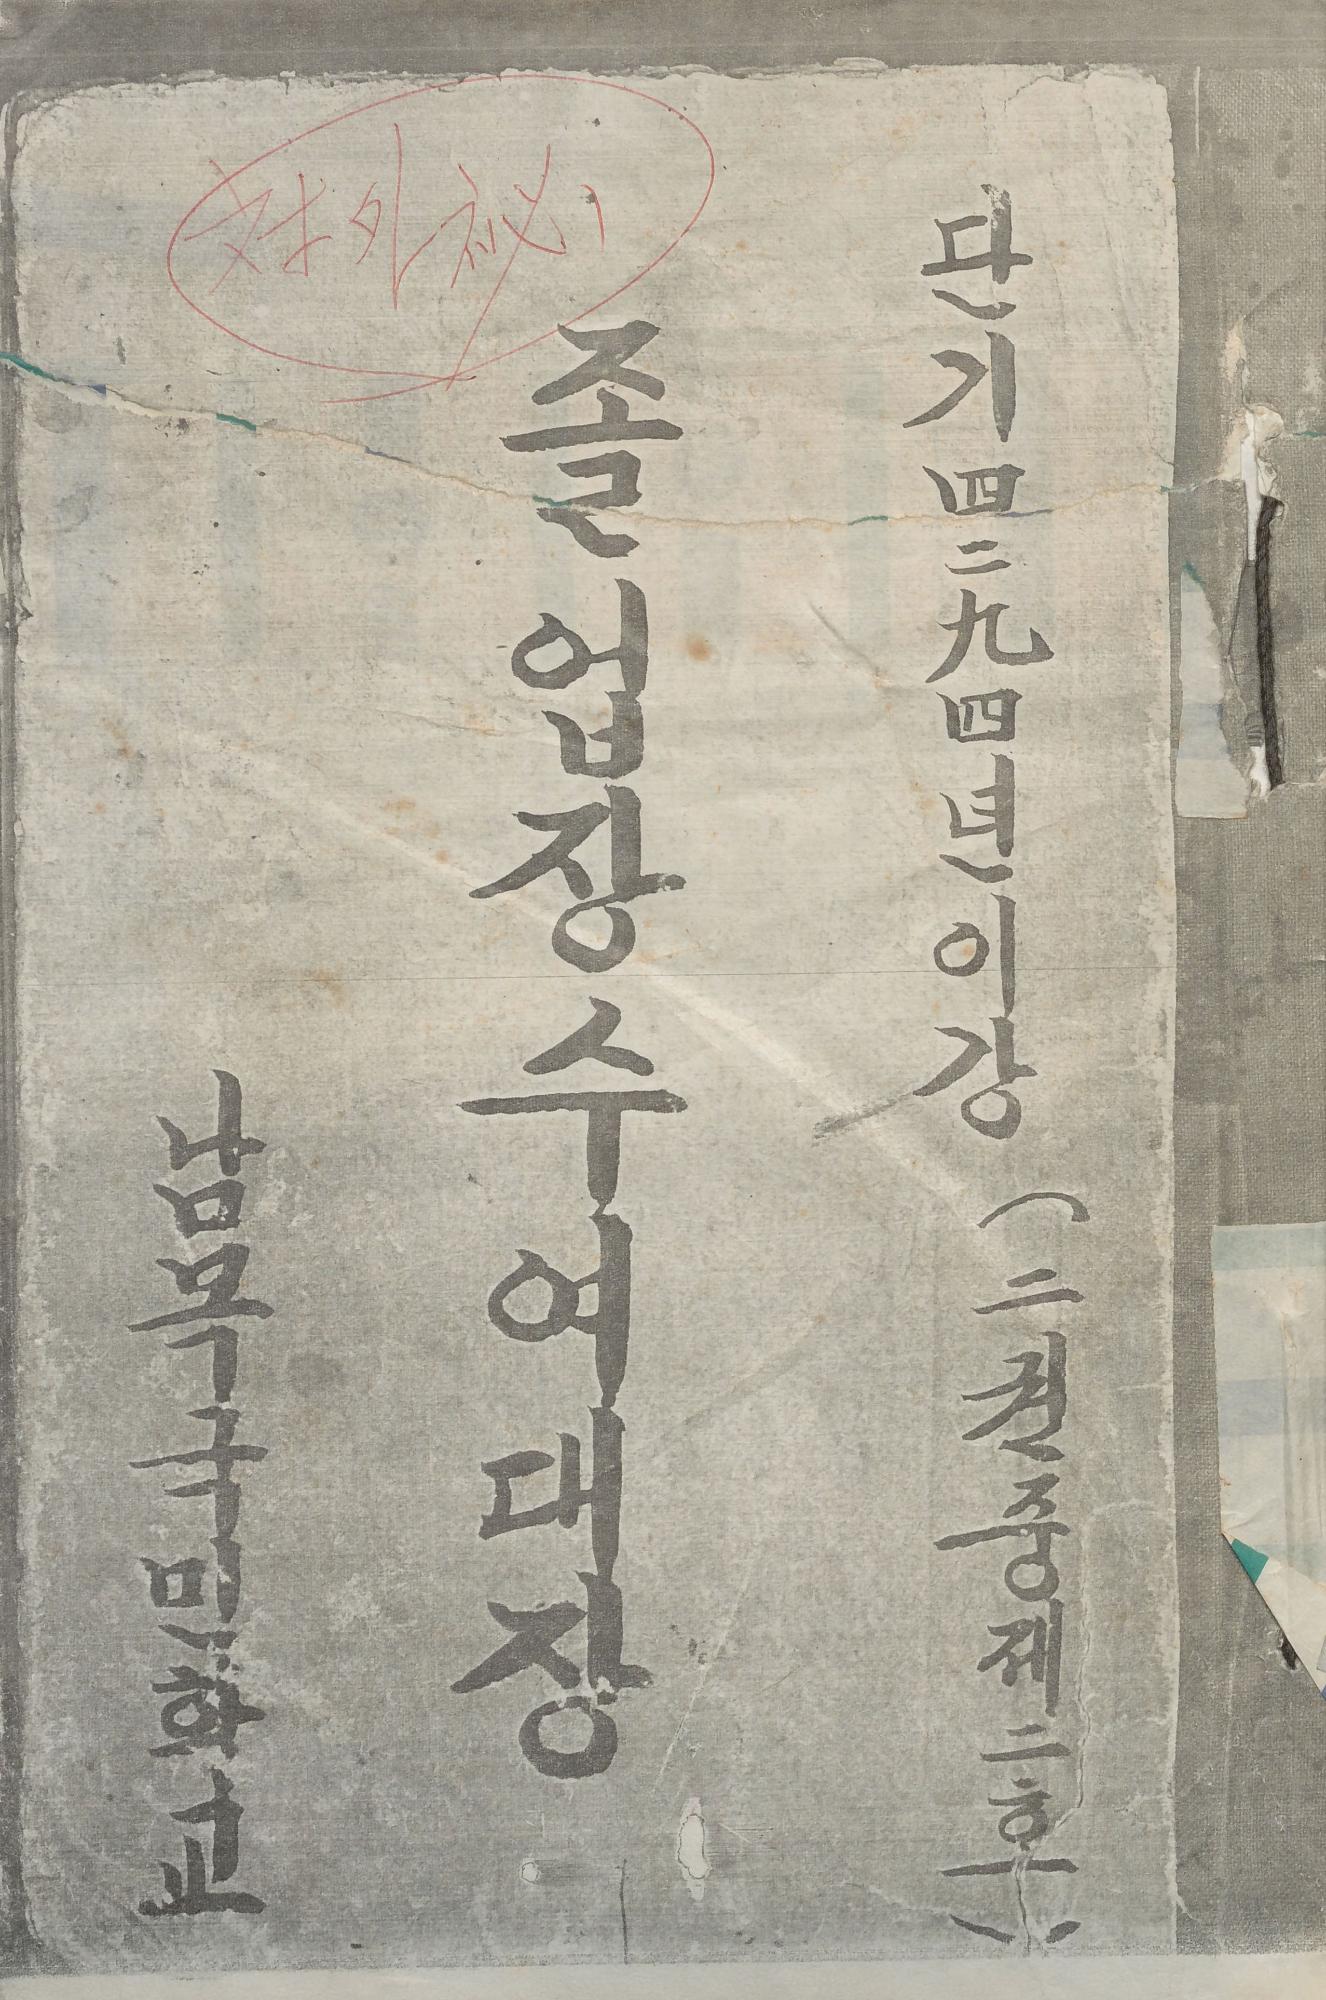 단기四二九四년이강(二권중제二호)
졸업장수여대장
남목국민학교
対外秘